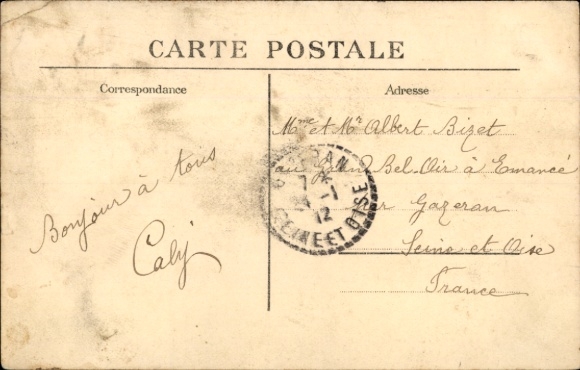 CARTE POSTALE
Correspondance
Adresse
Mme et Mr Albert Bizet
au Grand Bel-Air à Emancé
par Gazeran
Seine et Oise
France
Bonjour à tous
Caly
GAZERAN
7
24 -1
12
SEINE ET OISE